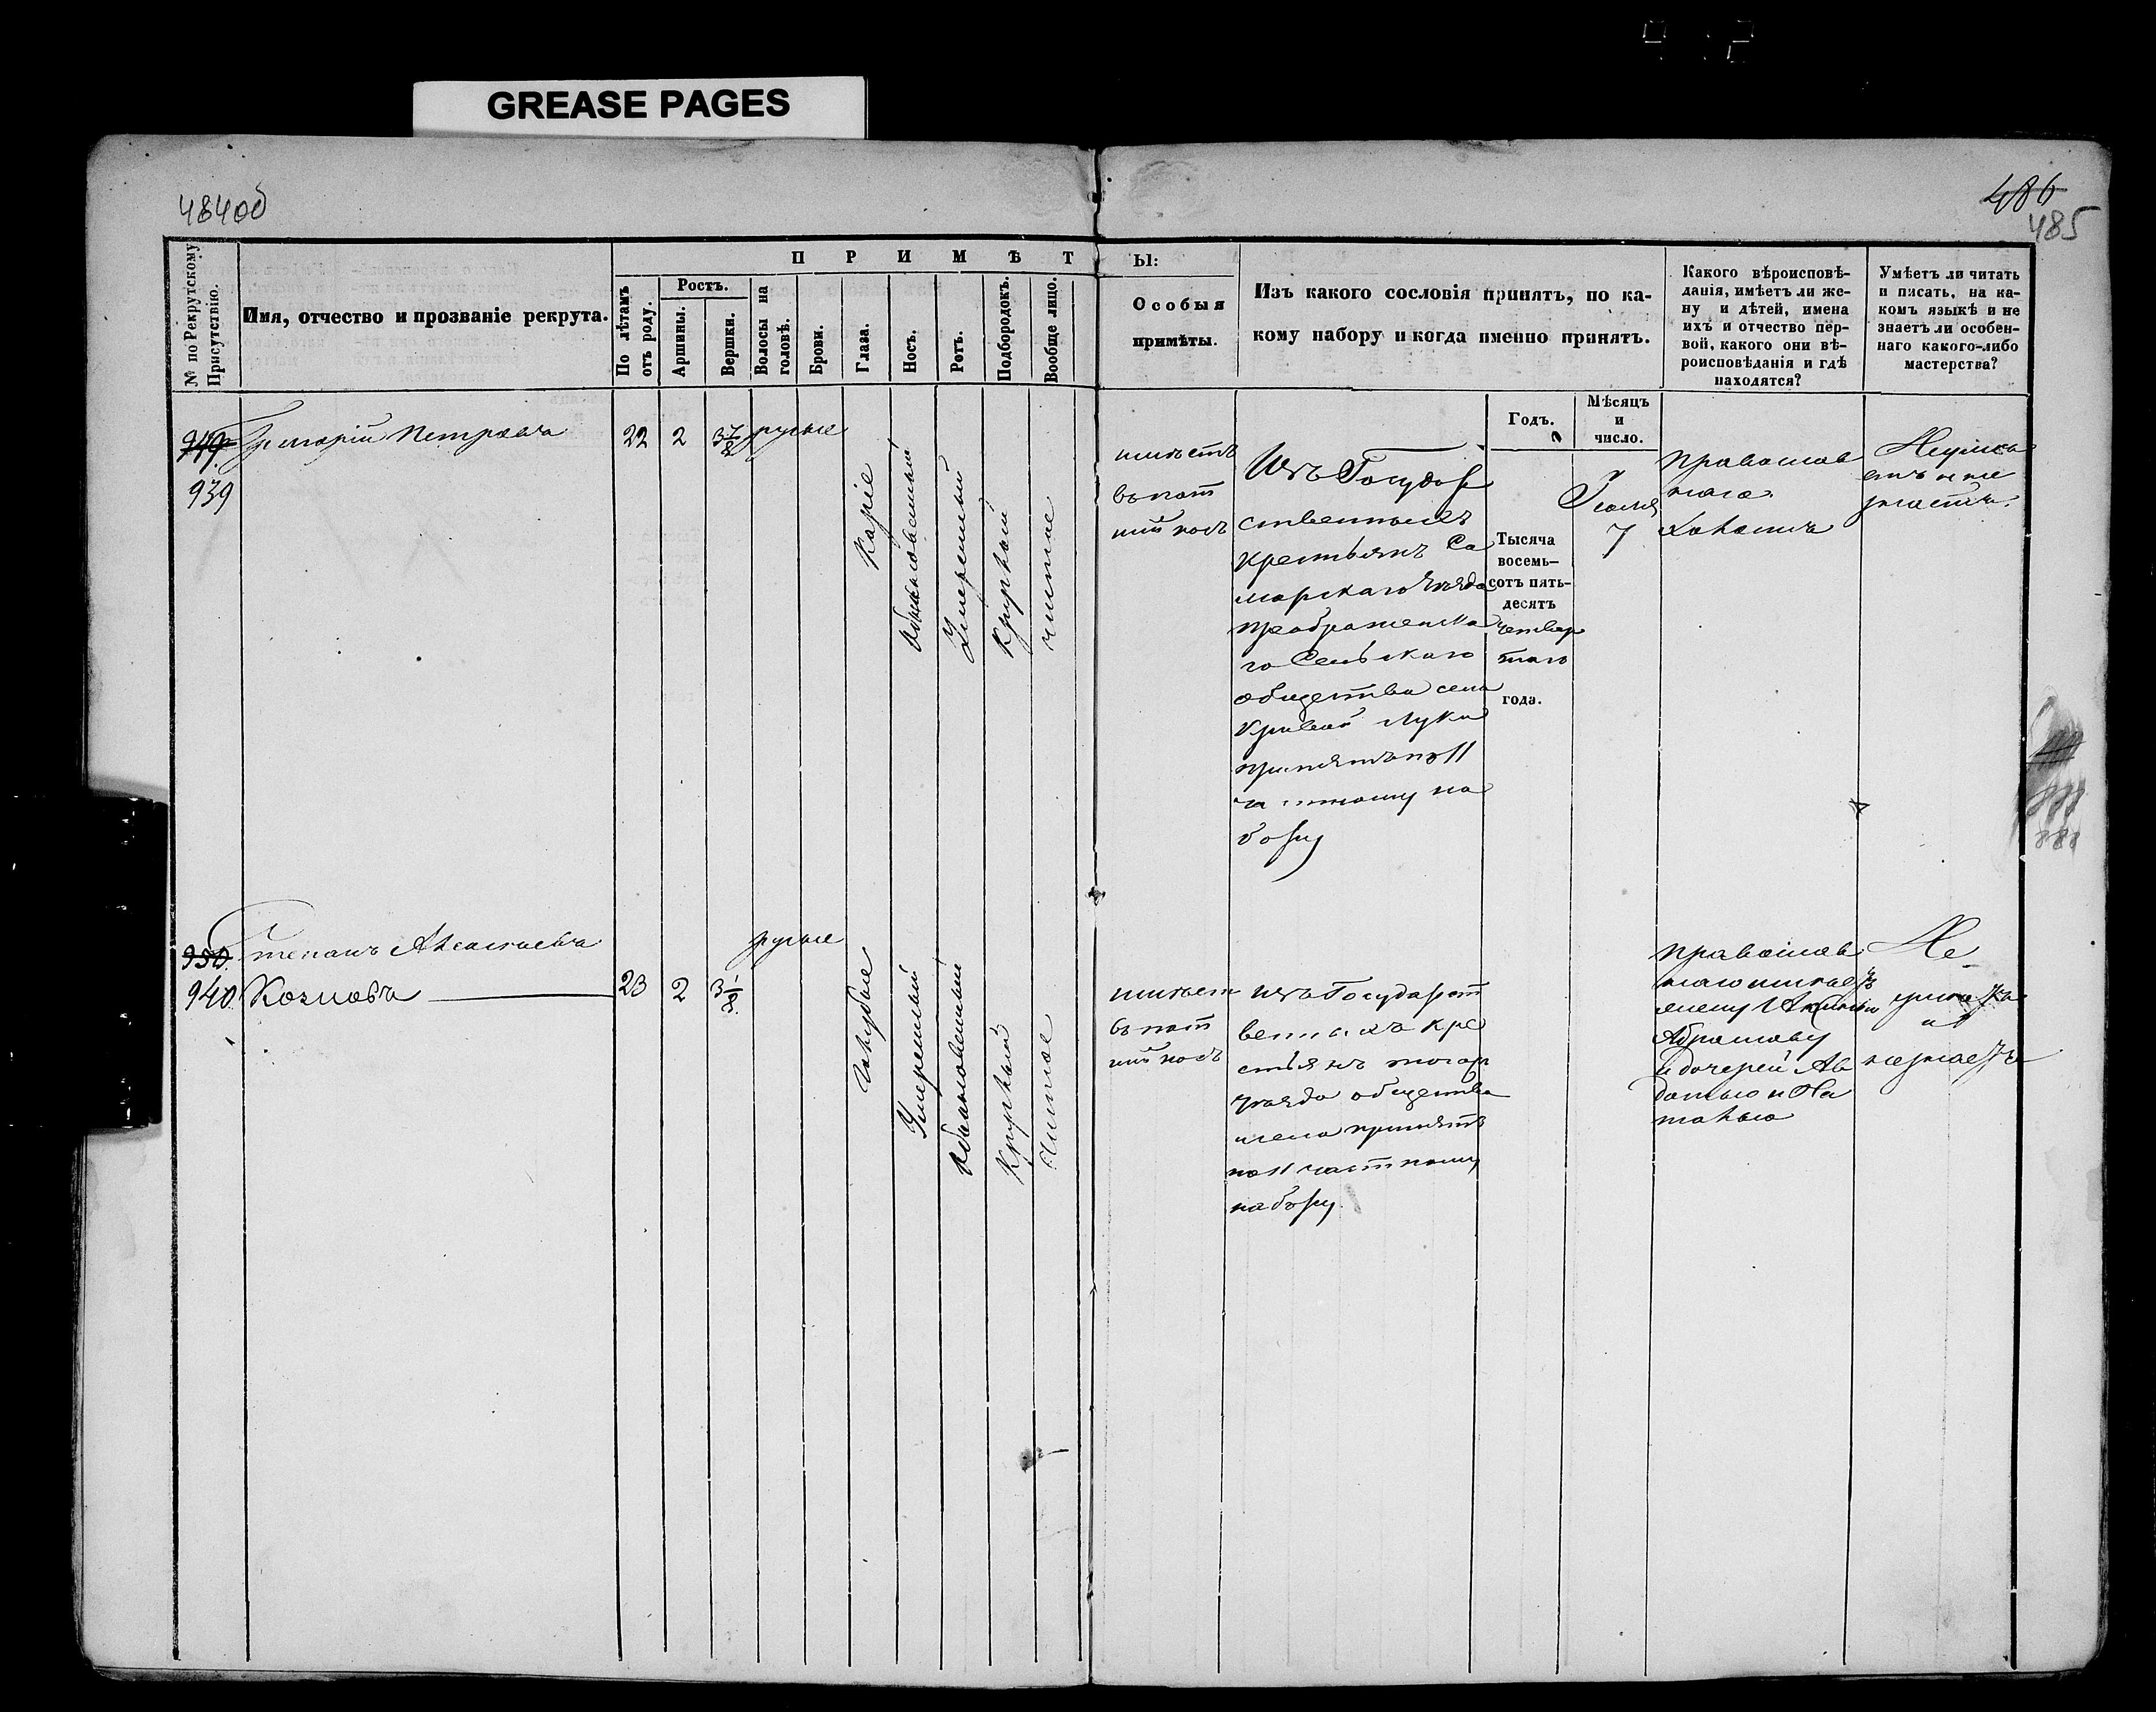 GREASE PAGES
484об
486
485
№ по Рекрутскому
Присутствію.
Имя, отчество и прозваніе рекрута.
ПРИМѢТ
Ы:
По лѣтамъ
отъ роду.
Ростъ.
Аршины.
Вершки.
Волосы на
головѣ.
Брови.
Глаза.
Носъ.
Ротъ.
Подбородокъ.
Вообще лицо.
Особыя
примѣты.
Изъ какого сословія принятъ, по ка-
кому набору и когда именно принятъ.
Годъ.
Мѣсяцъ
и
число.
Какого вѣроисповѣ-
данія, имѣетъ ли же-
ну и дѣтей, имена
ихъ и отчество пер-
вой, какого они вѣ-
роисповѣданія и гдѣ
находятся?
Умѣетъ ли читать
и писать, на ка-
комъ языкѣ и не
знаетъ ли особен-
наго какого-либо
мастерства?
949.
939
Григорій Петровъ
22
2
3 7/8
русые
Каріе
Обыкновенный
Умеренный
Круглый
чистое
имѣетъ
въ пот
ный носъ
Изъ Государ
ственныхъ
крестьянъ Са
марскаго уѣзда
Преображенска
го Сельскаго
общества села
Кривой Луки
принятъ по 11
частному на
бору
Тысяча
восемь-
сотъ пять-
десятъ
четвер
таго
года.
Іюля
7
православ
наго
холостъ
Неумѣ
етъ и не
знаетъ.
950.
940.
Степанъ Алексѣевъ
Козловъ
23
2
3 1/8
русые
голубые
Умеренный
Обыкновенный
Круглый
Чистое
имѣет
въ пот
ный носъ
изъ Государст
венныхъ кре
стьянъ тогоже
уѣзда общества
села принятъ
по 11 частному
набору.
православ
наго имѣетъ
жену Акулину
Абрамову
и дочерей Ав
дотью и На
талью
Не
умѣетъ
и
незнаетъ